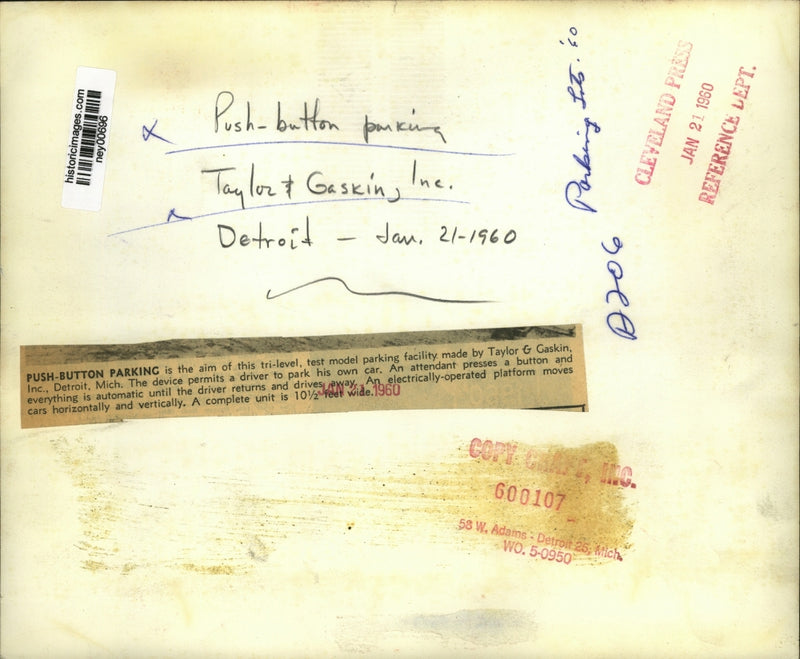 historicimages.com
ney00696
Push-button parking
Taylor & Gaskin, Inc.
Detroit - Jan. 21-1960
Parking Lots. '60
A206
CLEVELAND PRESS
JAN 21 1960
REFERENCE DEPT.
PUSH-BUTTON PARKING is the aim of this tri-level, test model parking facility made by Taylor & Gaskin,
Inc., Detroit, Mich. The device permits a driver to park his own car. An attendant presses a button and
everything is automatic until the driver returns and drives away. An electrically-operated platform moves
cars horizontally and vertically. A complete unit is 10½ feet wide.
JAN 21 1960
COPY CRAFT, INC.
600107
58 W. Adams - Detroit 26, Mich.
WO. 5-0950